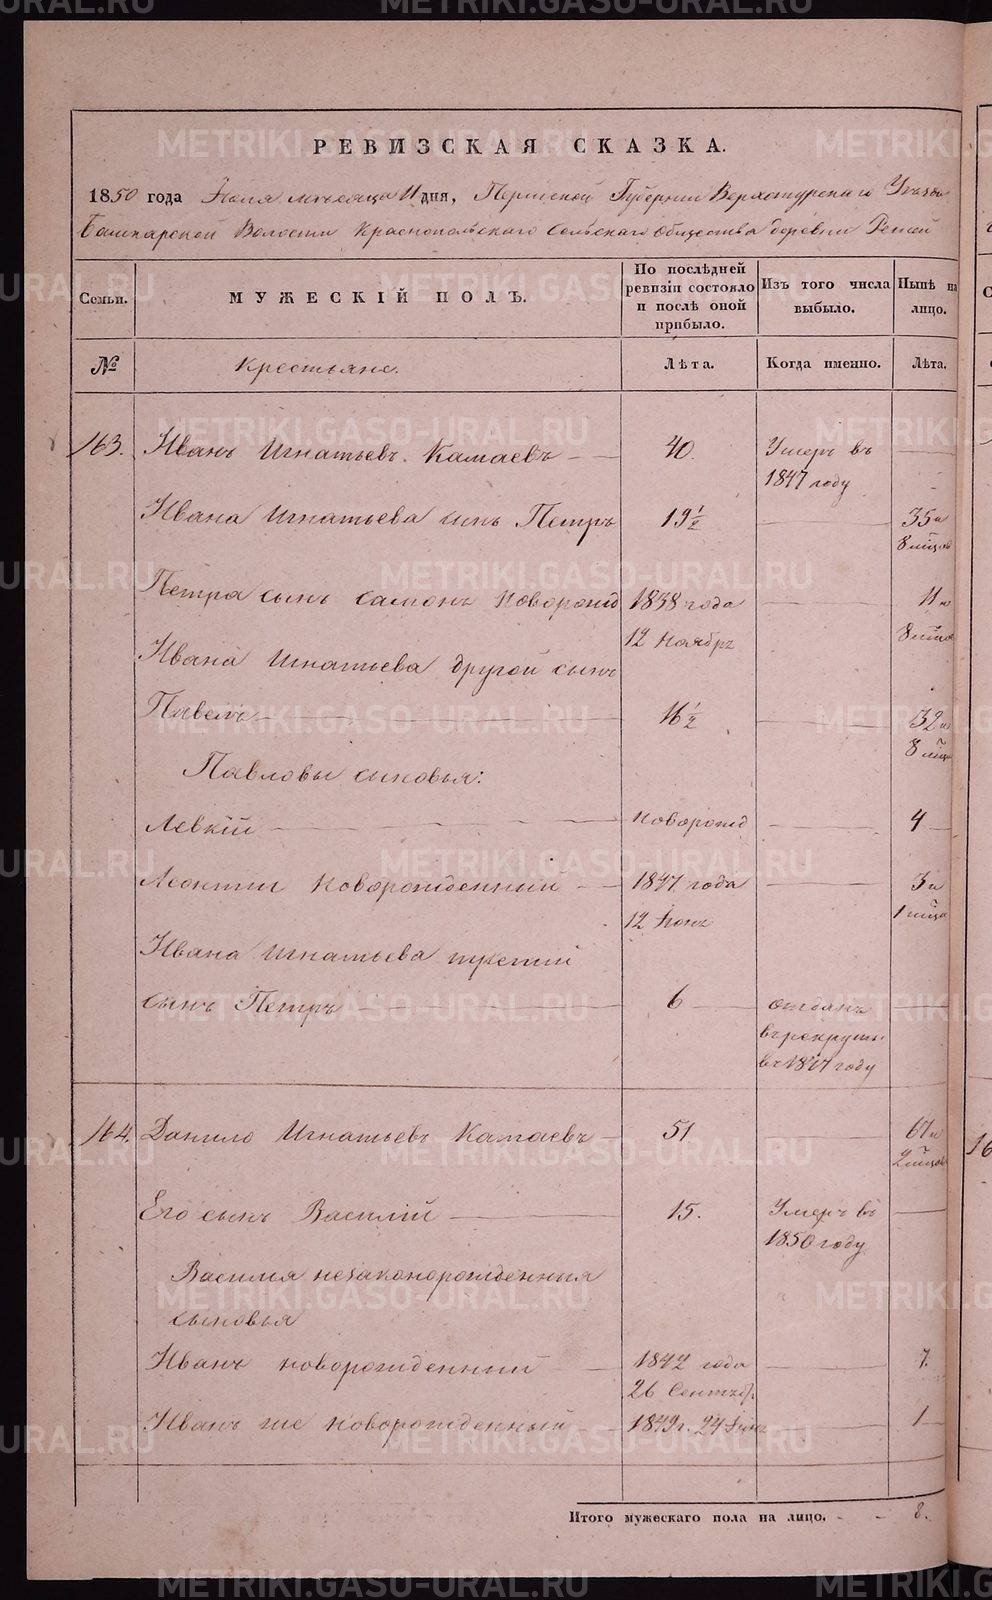 РЕВИЗСКАЯ СКАЗКА.
1850 года Июля месяца 11 дня, Пермской Губернии Верхотурскаго Уезда
Башкарской Волости Краснопольскаго Сельскаго Общества деревни
Семьи. МУЖЕСКІЙ ПОЛЪ. По послѣдней ревизіи состояло и послѣ оной прибыло. Изъ того числа выбыло. Нынѣ на лицо.
№ Крестьяне. Лѣта. Когда именно. Лѣта.
163. Иванъ Игнатьевъ Камаевъ 40. Умеръ въ
1847 году
Ивана Игнатьева сынъ Петръ 19½ 35 и
8 мѣцов
Петра сынъ Самонъ новорожд 1838 года 11 и
12 Ноября 8 мѣцов
Ивана Игнатьева другой сынъ
Павелъ 16½ 32 и
8 мѣц
Павловы сыновья:
Левкій новорожд 4
Леонтій новорожденный 1847 года 3 и
12 Іюня 1 мѣца
Ивана Игнатьева третій
сынъ Петръ 6 отданъ
въ рекруты
въ 1847 году
164. Данило Игнатьевъ Камаевъ 51 61 и
2 мѣцов
Его сынъ Василій 15. Умеръ въ
1850 году
Василья незаконорожденныя
сыновья
Иванъ новорожденный 1842 года 7.
26 Сентябр
Иванъ же новорожденный 1849 г. 24 Іюня 1
Итого мужескаго пола на лицо. - - 8.
METRIKI.GASO-URAL.RU